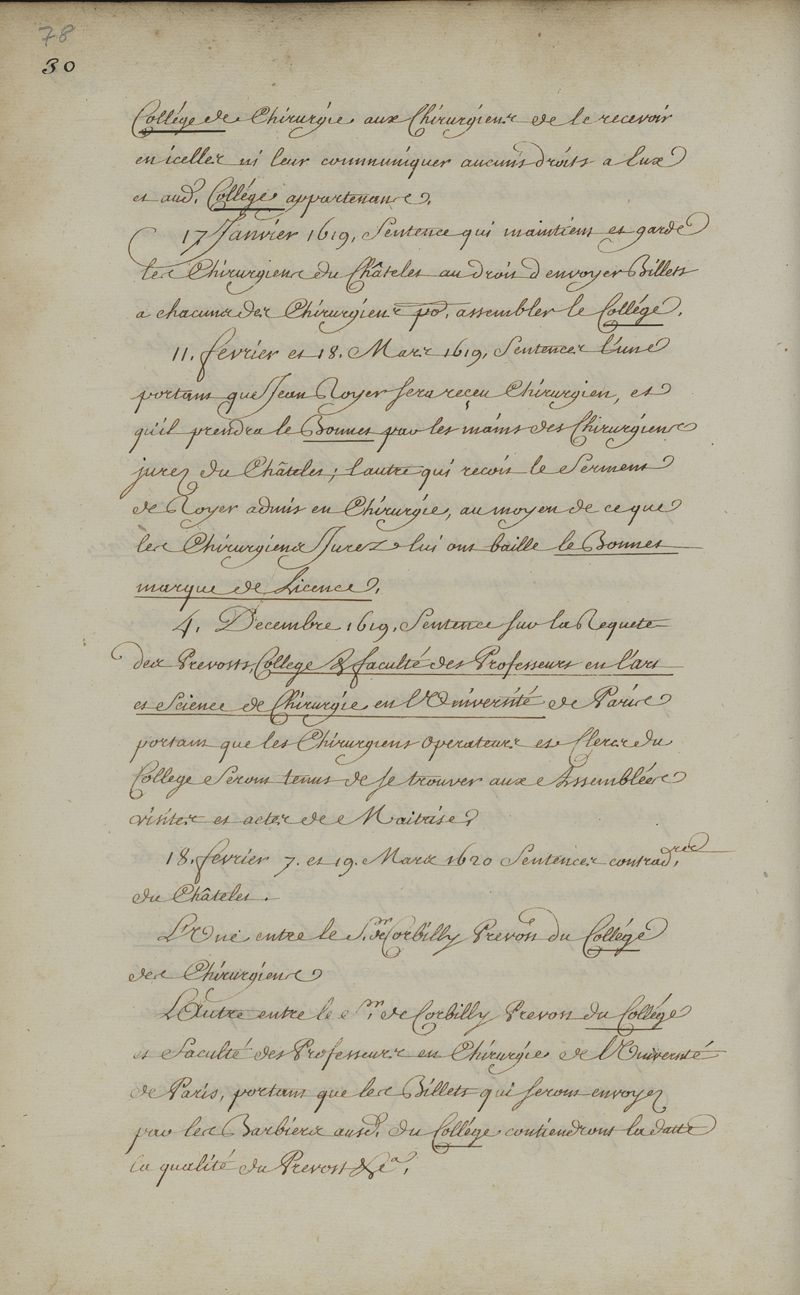 78
30
Collége de Chirurgie aux Chirurgiens de le recevoir
en icelles ni leur communiquer aucuns droits a lux
et aud. Collége appartenans.
17 Janvier 1619, Sentence qui maintient et garde
les Chirurgiens du Châtelet au droit d'envoyer Billets
a chacuns des Chirurgiens po. assembler le Collége.
11. fevrier et 18. Mars 1619, Sentences l'une
portant que Jean Royer sera receu Chirurgien, et
qu'il prendra le Bonnet par les mains des Chirurgiens
jurez du Châtelet; l'autre qui recoit le Serment
de Royer admis en Chirurgie, au moyen de ce que
les Chirurgiens Jurez lui ont baille le Bonnet
marque de Licence.
4. Decembre 1619, Sentence sur la Requete
des Prevosts, College & faculté des Professeurs en l'art
et Science de Chirurgie en l'Université de Paris
portant que les Chirurgiens Operateurs et Clercs du
College Seront tenus de se trouver aux Assemblées
visites et actes de Maitrise,
18. fevrier 7. et 19. Mars 1620 Sentences contrad.res
du Châtelet.
L'Une entre le S.r de Corbilly Prevost du Collége
des Chirurgiens
L'Autre entre le S.r de Corbilly Prevost du Collége
et Faculté des Professeurs en Chirurgie de l'Université
de Paris, portant que les Billets qui seront envoyez
par les Barbiers ausd. du Collége contiendront la datte
la qualité du Prevost &c.a,